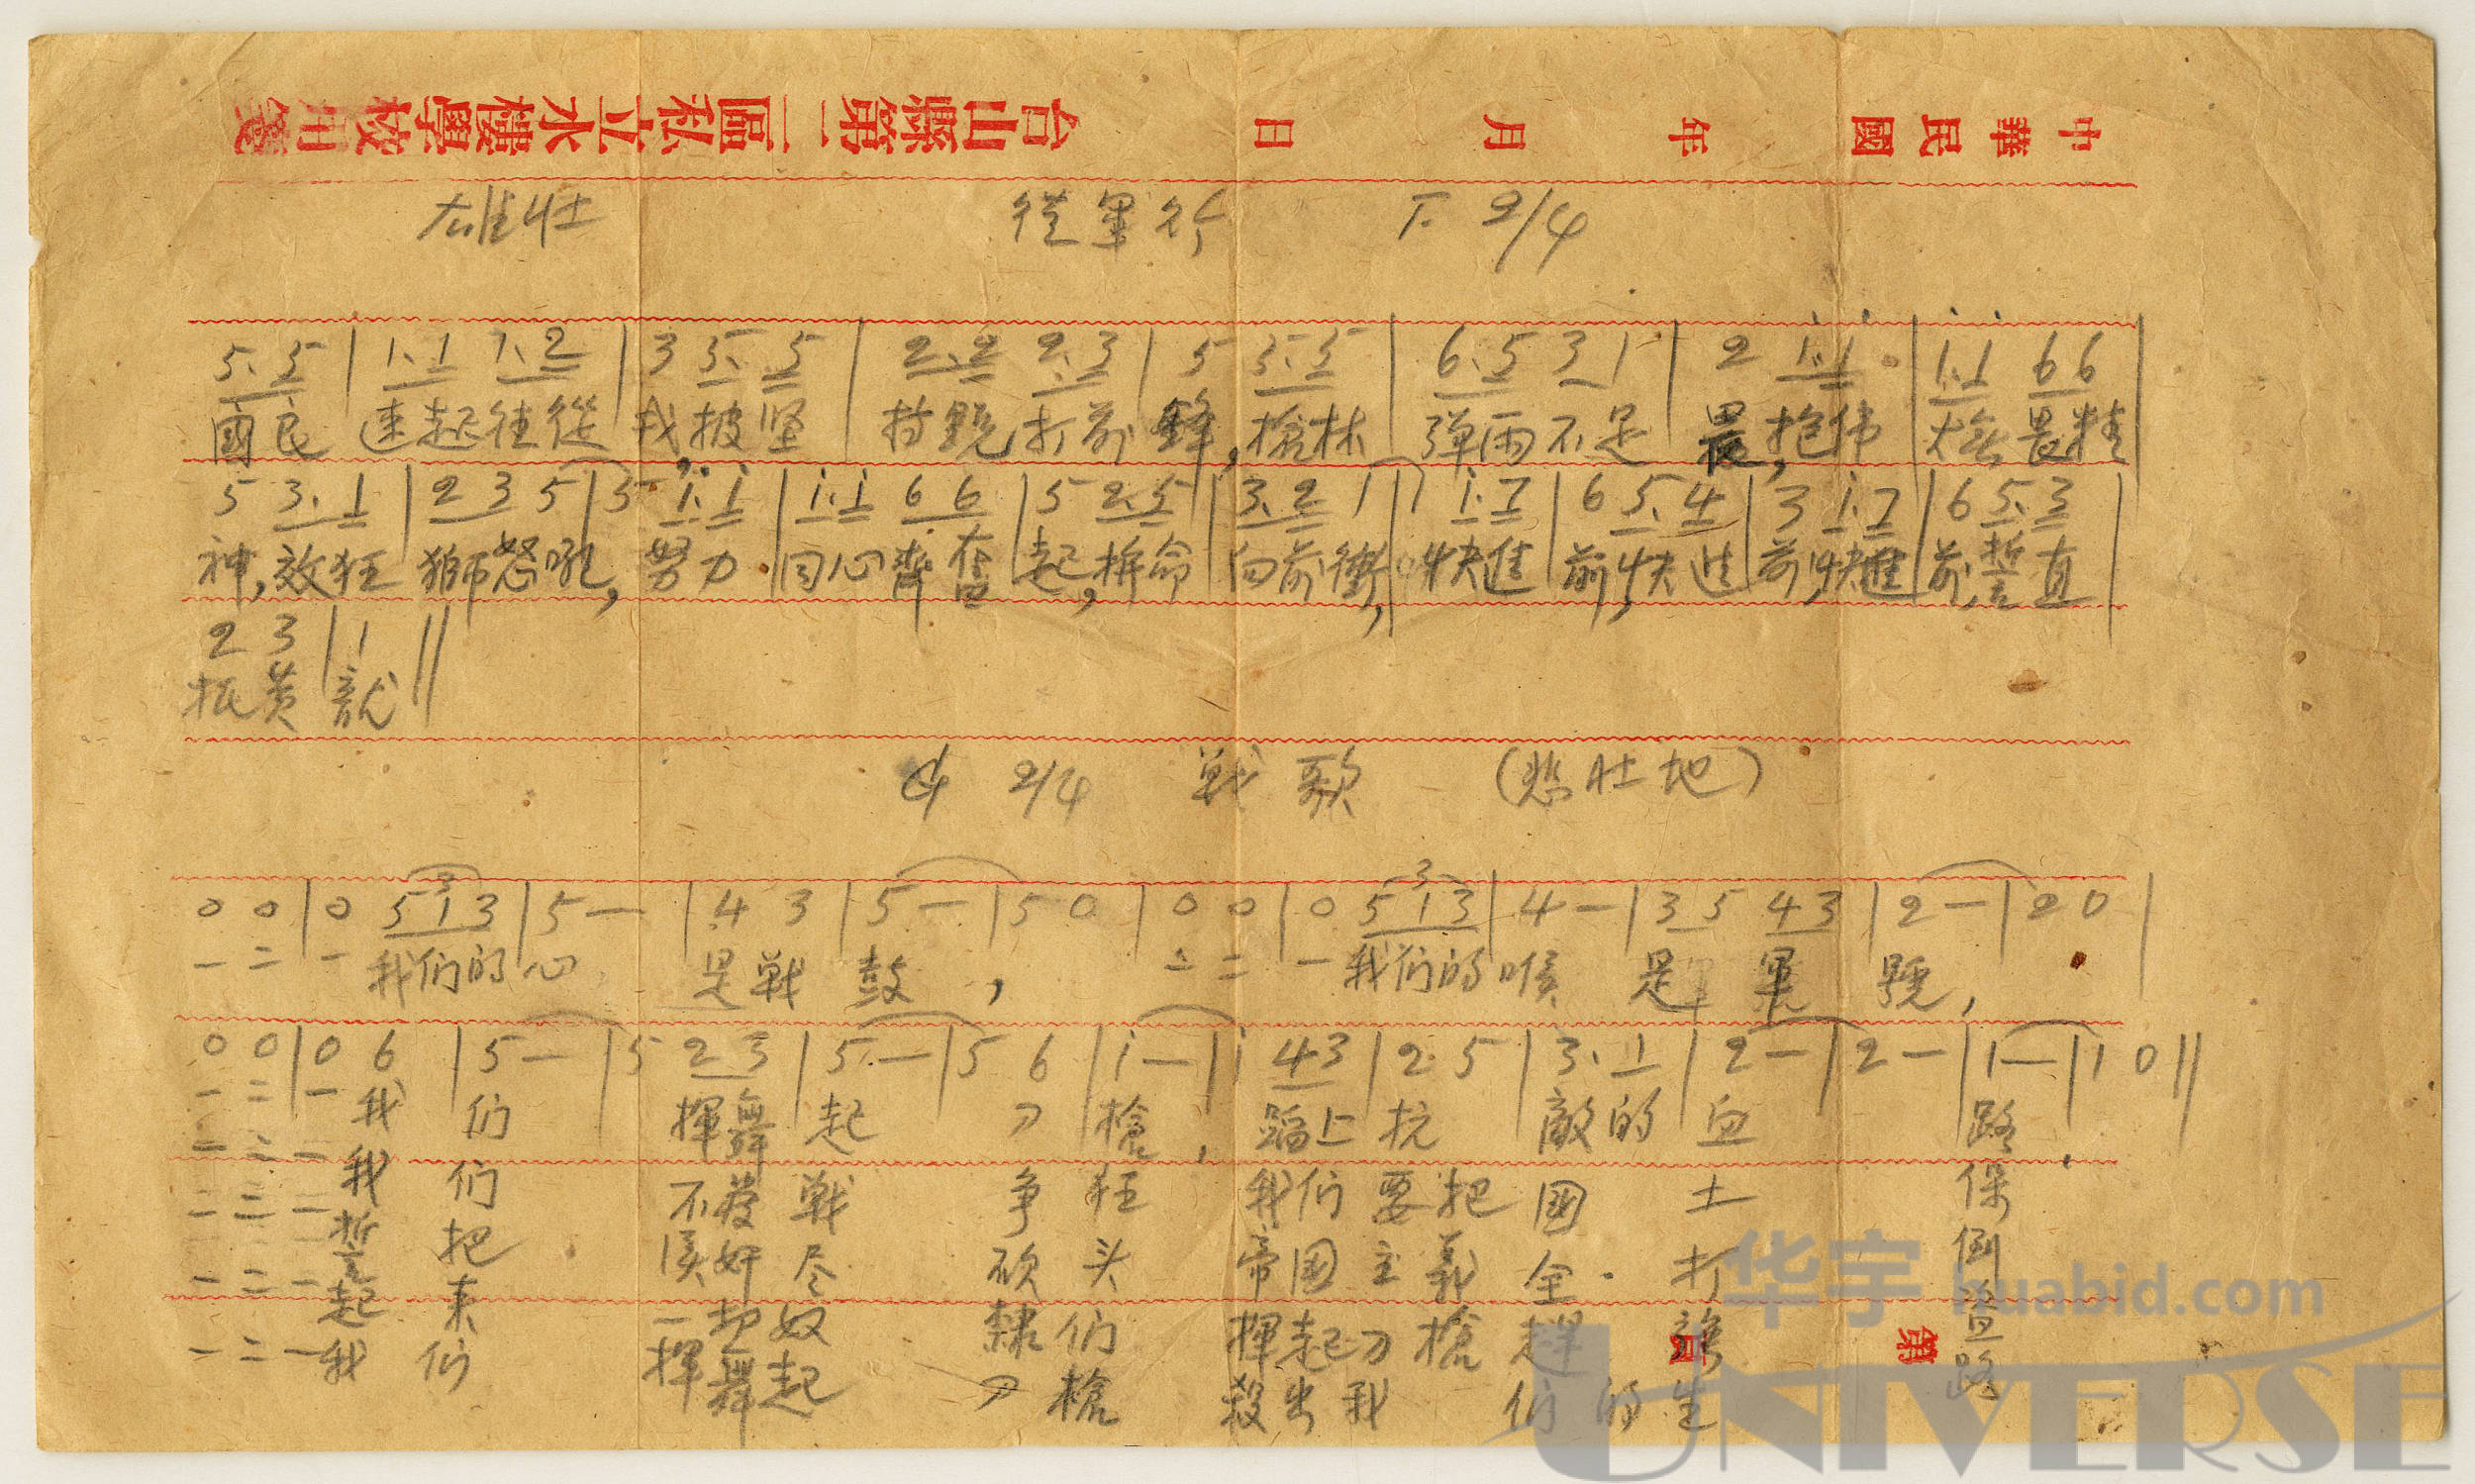 台山縣第二區私立水樓學校用箋
中華民國 年 月 日
雄壯 從軍行 F. 2/4
5. 5 | 1. 1 1. 2 | 3 5. 5 | 2. 2 2. 3 | 5 5. 5 | 6. 5 3 1 | 2 1. 1 | 1. 1 6 6 |
國民 速起往從 戎,披坚 持銳打前 鋒,槍林 彈雨不足 畏,抱伟 大無畏精
5 3. 1 | 2 3 5 | 5 1. 1 | 1. 1 6 6 | 5 2. 5 | 3. 2 1 | 1 1. 7 | 6 5. 4 | 3 1. 7 | 6 5. 3 |
神,效狂 獅怒吼,努力 同心齊奮 起,拚命 向前衝,快進 前,快進 前,快進 前,誓直
2 3 | 1 ||
抵黄 龍
G 2/4 戰歌 (悲壯地)
0 0 | 0 5 1 3 | 5 — | 4 3 | 5 — | 5 0 | 0 0 | 0 5 1 3 | 4 — | 3 5 4 3 | 2 — | 2 0 |
一 二 一 我们的心 是戰 鼓, 一 二 一 我们的喉 是 軍 號,
0 0 | 0 6 | 5 — | 5 2 3 | 5 — | 5 6 | 1 — | 1 4 3 | 2 5 | 3. 1 | 2 — | 2 — | 1 — | 1 0 ||
一 二 一 我 们 揮舞 起 刀 槍, 踏上 抗 敵的 血 路.
一 二 一 我 们 不發 戰 争 狂 我们 要把 國 土 保
二 二 一 誓 把 漢奸 尽 砍 头 帝国 主義 全 打 倒
一 二 一 起 来 奴 隸 们 揮起刀 槍
一 二 一 我 们 揮舞起 刀 槍 殺出我 们 的 生 路
第 頁
华宇 huabid.com
UNIVERSE